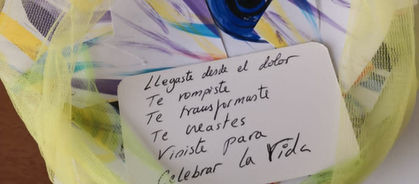 Llegaste desde el dolor
Te rompiste
Te transformaste
Te creastes
Viniste para
Celebrar la Vida